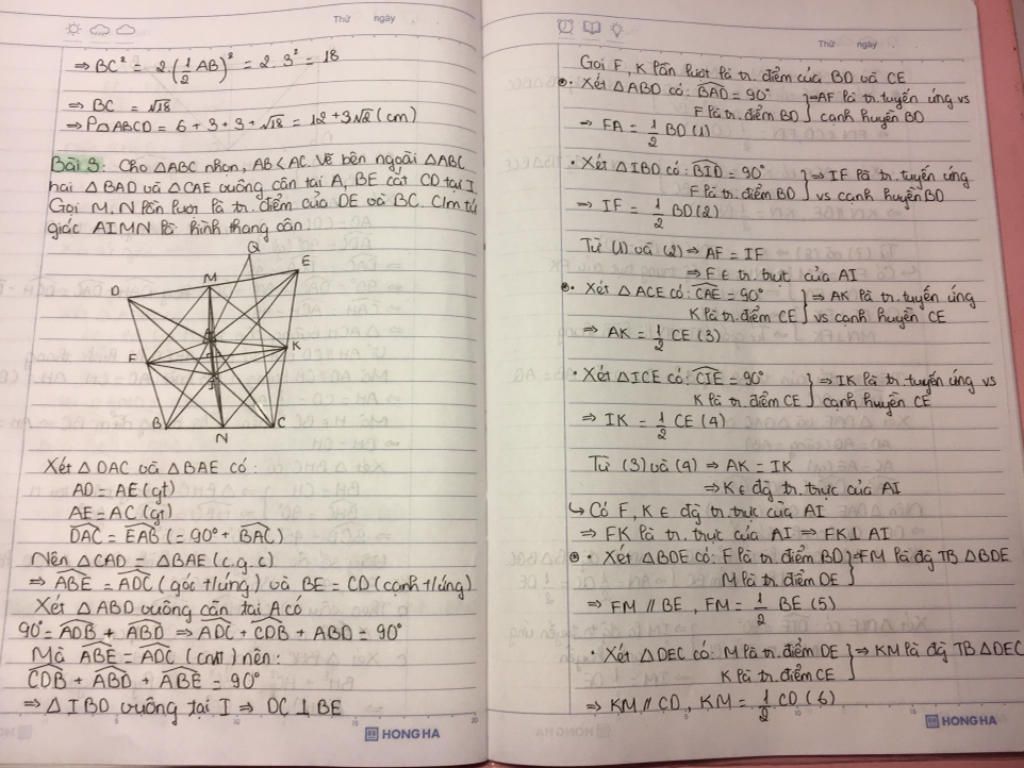 Thứ ngày
⇒ BC² = 2(1/2 AB)² = 2.3² = 18
⇒ BC = √18
⇒ P△ABCD = 6 + 3 + 3 + √18 = 12 + 3√2 (cm)
Bài 3: Cho △ABC nhọn, AB < AC. Vẽ bên ngoài △ABC
hai △BAD và △CAE vuông cân tại A, BE cắt CD tại I
Gọi M, N lần lượt là tr. điểm của DE và BC. C/m tứ
giác AIMN là hình thang cân
Q
M
E
D
A
F
K
I
B
N
C
Xét △DAC và △BAE có:
AD = AE (gt)
AE = AC (gt)
DAC = EAB (= 90° + BAC)
Nên △CAD = △BAE (c.g.c)
⇒ ABE = ADC (góc t/ứng) và BE = CD (cạnh t/ứng)
Xét △ABD vuông cân tại A có
90° = ADB + ABD ⇒ ADC + CDB + ABD = 90°
Mà ABE = ADC (cmt) nên:
CDB + ABD + ABE = 90°
⇒ △IBD vuông tại I ⇒ DC ⊥ BE
HONG HA
Thứ ngày
Gọi F, K lần lượt là tr. điểm của BD và CE
• Xét △ABD có: BAD = 90° ⇒ AF là tr. tuyến ứng vs
F là tr. điểm BD cạnh huyền BD
⇒ FA = 1/2 BD (1)
• Xét △IBD có: BID = 90° ⇒ IF là tr. tuyến ứng
F là tr. điểm BD vs cạnh huyền BD
⇒ IF = 1/2 BD (2)
Từ (1) và (2) ⇒ AF = IF
⇒ F ∈ tr. trực của AI
• Xét △ACE có: CAE = 90° ⇒ AK là tr. tuyến ứng
K là tr. điểm CE vs cạnh huyền CE
⇒ AK = 1/2 CE (3)
• Xét △ICE có: CIE = 90° ⇒ IK là tr. tuyến ứng vs
K là tr. điểm CE cạnh huyền CE
⇒ IK = 1/2 CE (4)
Từ (3) và (4) ⇒ AK = IK
⇒ K ∈ đg tr. trực của AI
↪ Có F, K ∈ đg tr. trực của AI
⇒ FK là tr. trực của AI ⇒ FK ⊥ AI
• Xét △BDE có: F là tr. điểm BD ⇒ FM là đg TB △BDE
M là tr. điểm DE
⇒ FM // BE, FM = 1/2 BE (5)
• Xét △DEC có: M là tr. điểm DE ⇒ KM là đg TB △DEC
K là tr. điểm CE
⇒ KM // CD, KM = 1/2 CD (6)
HONG HA